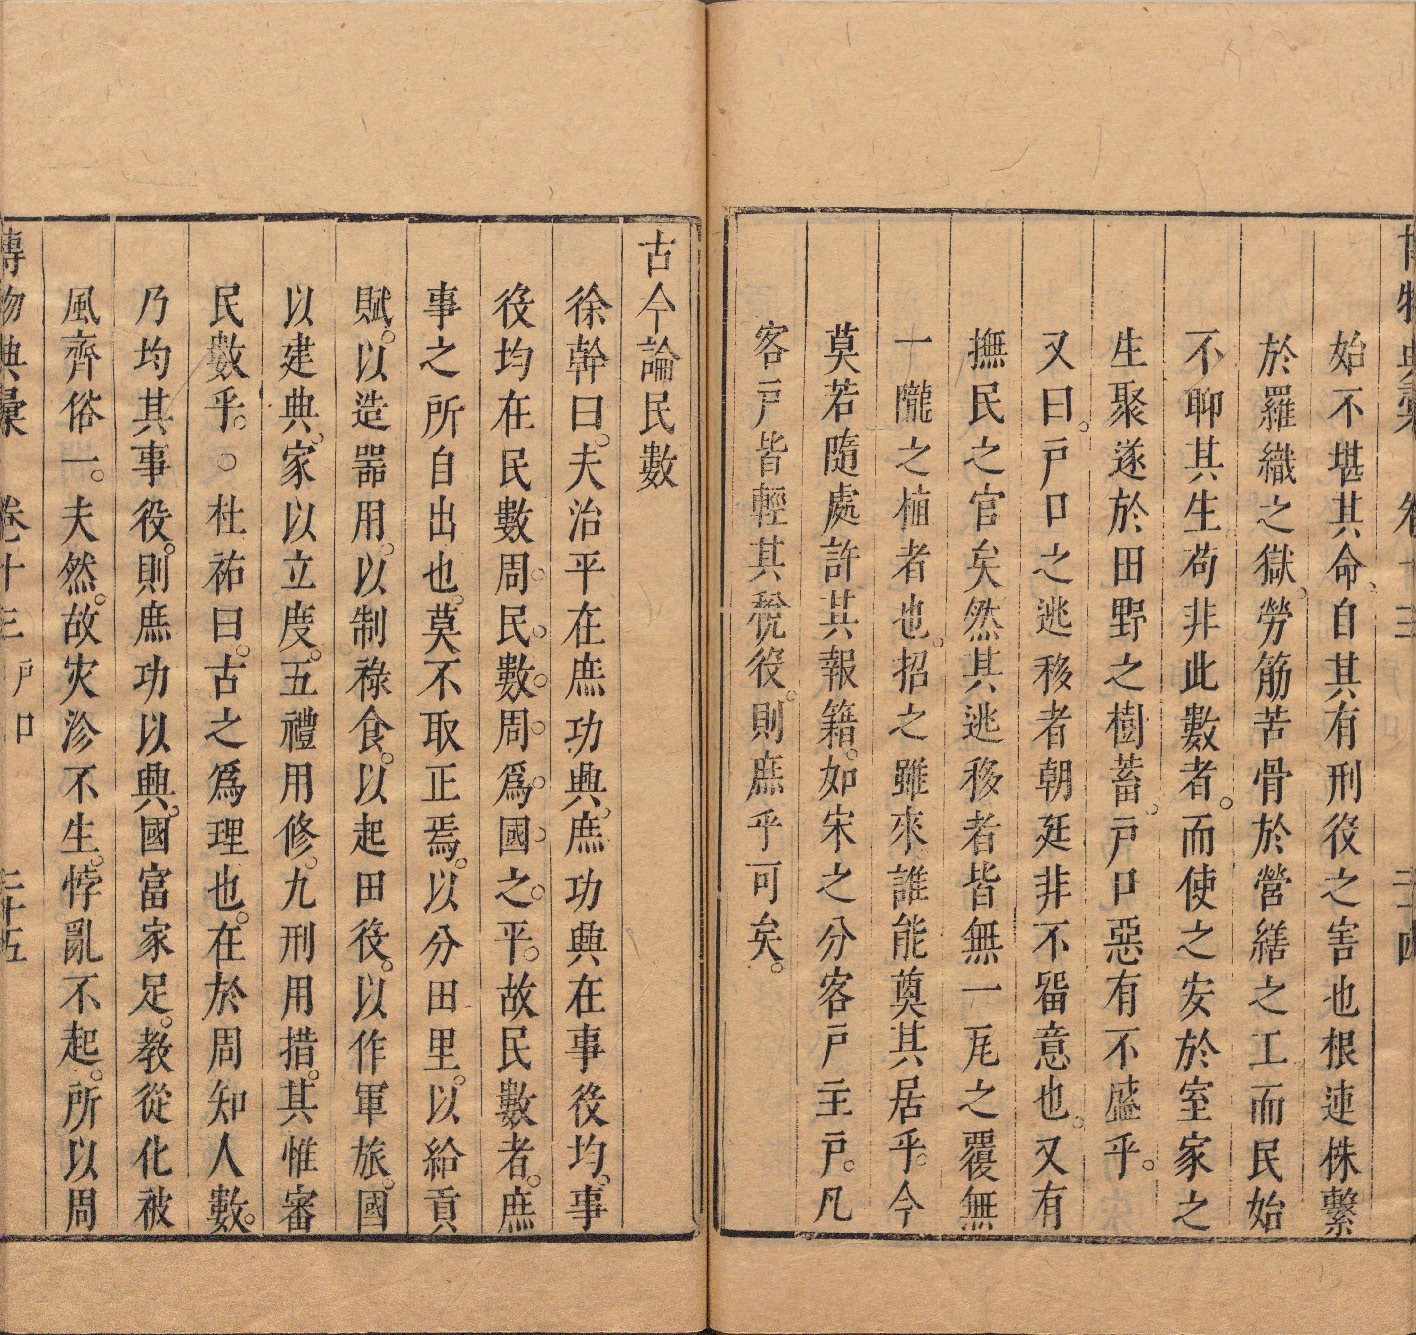 博物典彙 卷十三 戶口 二十四
始不堪其命自其有刑役之害也根連株繫
於羅織之獄勞筋苦骨於營繕之工而民始
不聊其生苟非此數者。而使之安於室家之
生聚遂於田野之樹蓄戶口惡有不盛乎。
又曰。戶口之逃移者朝廷非不畱意也。又有
撫民之官矣然其逃移者皆無一瓦之覆無
一隴之植者也。招之雖來誰能奠其居乎。今
莫若隨處許其報籍。如宋之分客戶主戶。凡
客戶皆輕其稅役。則庶乎可矣。
古今論民數
徐幹曰。夫治平在庶功興。庶功興在事役均。事
役均在民數周。民。數。周。爲。國。之。平。故民數者。庶
事之所自出也。莫不取正焉。以分田里。以給貢
賦。以造噐用。以制祿食。以起田役。以作軍旅。國
以建典。家以立度。五禮用修。九刑用措。其惟審
民數乎。○杜祐曰。古之爲理也。在於周知人數。
乃均其事役。則庶功以興。國富家足。教從化被
風齊俗一。夫然。故灾沴不生。悖亂不起。所以周
博物典彙 卷十三 戶口 二十五